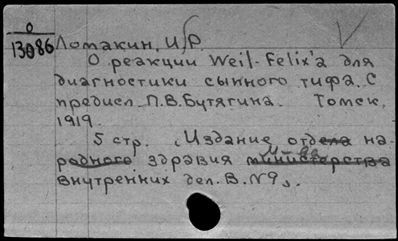 0
13086 Ломакин, И.Р.
О реакции Weil-Felix'a для
диагностики сыпного тифа. С
предисл. П.В. Бутягина. Томск,
1919.
5 стр. (Издание отдела на-
родного здравия министерства М-ва
внутренних дел. В. №9).